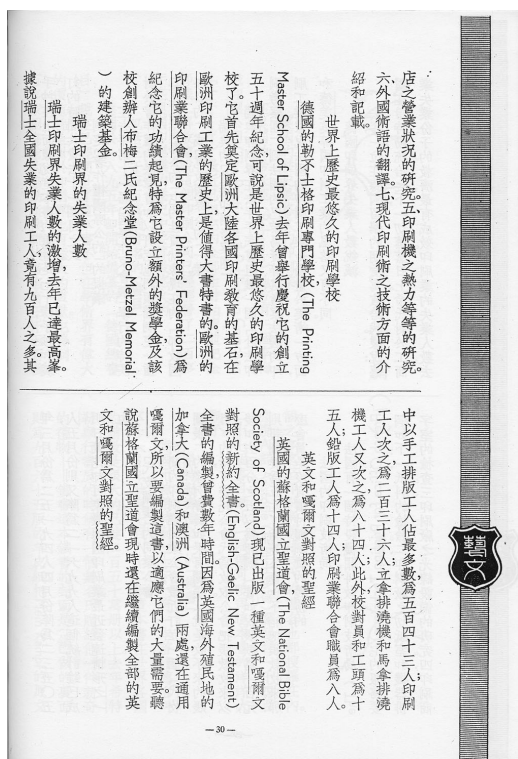 店之營業狀況的研究。五、印刷機之熱力等等的研究。
六、外國術語的翻譯。七、現代印刷術之技術方面的介
紹和記載。
世界上歷史最悠久的印刷學校
德國的勒不士格印刷專門學校，(The Printing
Master School of Lipsic)去年曾舉行慶祝它的創立
五十週年紀念，可說是世界上歷史最悠久的印刷學
校了。它首先奠定歐洲大陸各國印刷敎育的基石，在
歐洲印刷工業的歷史上，是値得大書特書的。歐洲的
印刷業聯合會，(The Master Printers' Federation)爲
紀念它的功績起見，特爲它設立額外的獎學金，及該
校創辦人布梅二氏紀念堂(Bruno-Metzel Memorial
)的建築基金。
瑞士印刷界的失業人數
瑞士印刷界失業人數的激增，去年已達最高峯。
據說瑞士全國失業的印刷工人，竟有九百人之多。其
中以手工排版工人佔最多數，爲五百四十三人；印刷
工人次之，爲二百三十六人；立拿排澆機和馬拿排澆
機工人又次之，爲八十四人；此外，校對員和工頭爲十
五人；鉛版工人爲十四人；印刷業聯合會職員爲八人。
英文和嘎爾文對照的聖經
英國的蘇格蘭國立聖道會，(The National Bible
Society of Scotland)現已出版一種英文和嘎爾文
對照的新約全書。(English-Gaelic New Testament)
全書的編製，曾費數年時間。因爲英國海外殖民地的
加拿大(Canada)和澳洲(Australia)兩處，還在通用
嘎爾文，所以要編製這書，以適應它們的大量需要。聽
說蘇格蘭國立聖道會，現時還在繼續編製全部的英
文和嘎爾文對照的聖經。
藝文
—30—